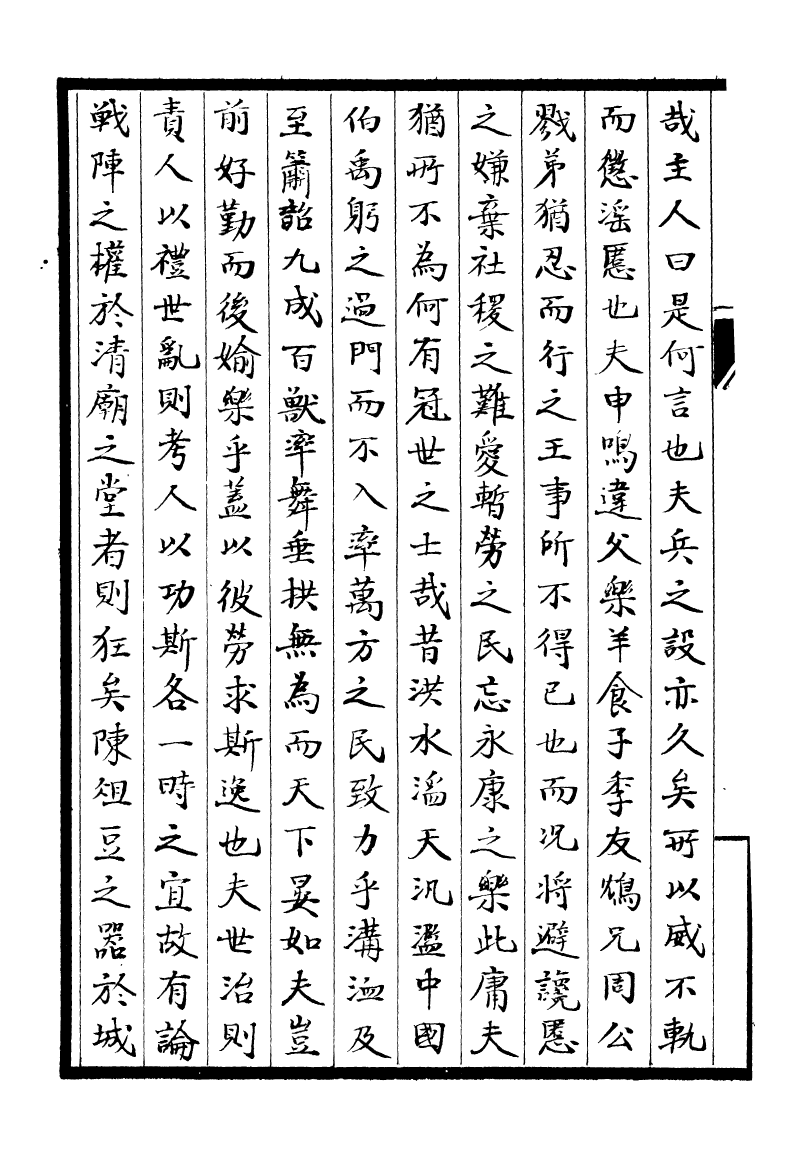 哉主人曰是何言也夫兵之設亦久矣所以威不軌
而懲滛慝也夫申鳴違父樂羊食子季友鴆兄周公
戮弟猶忍而行之王事所不得已也而况将避讒慝
之嫌棄社稷之難愛暫勞之民忘永康之樂此庸夫
猶所不為何有冠世之士哉昔洪水滔天汎濫中國
伯禹躬之過門而不入率萬方之民致力乎溝洫及
至簫韶九成百獸率舞垂拱無為而天下晏如夫豈
前好勤而後媮樂乎蓋以彼勞求斯逸也夫世治則
責人以禮世亂則考人以功斯各一時之宜故有論
戦陣之權於清廟之堂者則狂矣陳俎豆之器於城